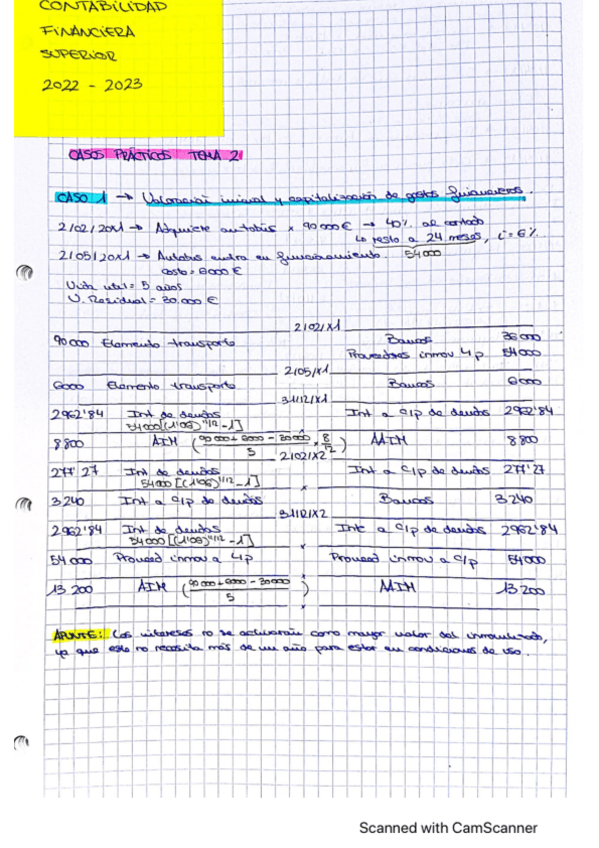 CONTABILIDAD
FINANCIERA
SUPERIOR
2022 - 2023
CASOS PRÁCTICOS TEMA 2
CASO 1 → Valoración inicial y capitalización de gastos financieros.
2/02/20x1 → Adquiere autobús x 90 000 € → 40% al contado
↳ resto a 24 meses, i = 6%
54000
2/05/20x1 → Autobús entra en funcionamiento.
costo = 6000 €
Vida útil = 5 años
V. Residual = 30.000 €
2/02/X1
90 000 Elemento transporte Bancos 36 000
Proveedores inmov L/p 54 000
2/05/X1
6000 Elemento transporte Bancos 6 000
31/12/X1
2962'84 Int de deudas Int a c/p de deudas 2962'84
54 000 [(1'06)^11/12 - 1]
8 800 AIM (90 000 + 6000 - 30000 / 5 x 8/12) AAIM 8 800
2/02/X2
277'27 Int de deudas Int a c/p de deudas 277'27
54 000 [(1'06)^1/12 - 1]
x
3 240 Int a c/p de deudas Bancos 3 240
31/12/X2
2962'84 Int de deudas Int a c/p de deudas 2962'84
54 000 [(1'06)^11/12 - 1]
x
54 000 Proveed inmov a L/p Proveed inmov a c/p 54 000
x
13 200 AIM (90 000 + 6000 - 30000 / 5) AAIM 13 200
APUNTE: Los intereses no se activarán como mayor valor del inmovilizado,
ya que este no necesita más de un año para estar en condiciones de uso.
Scanned with CamScanner